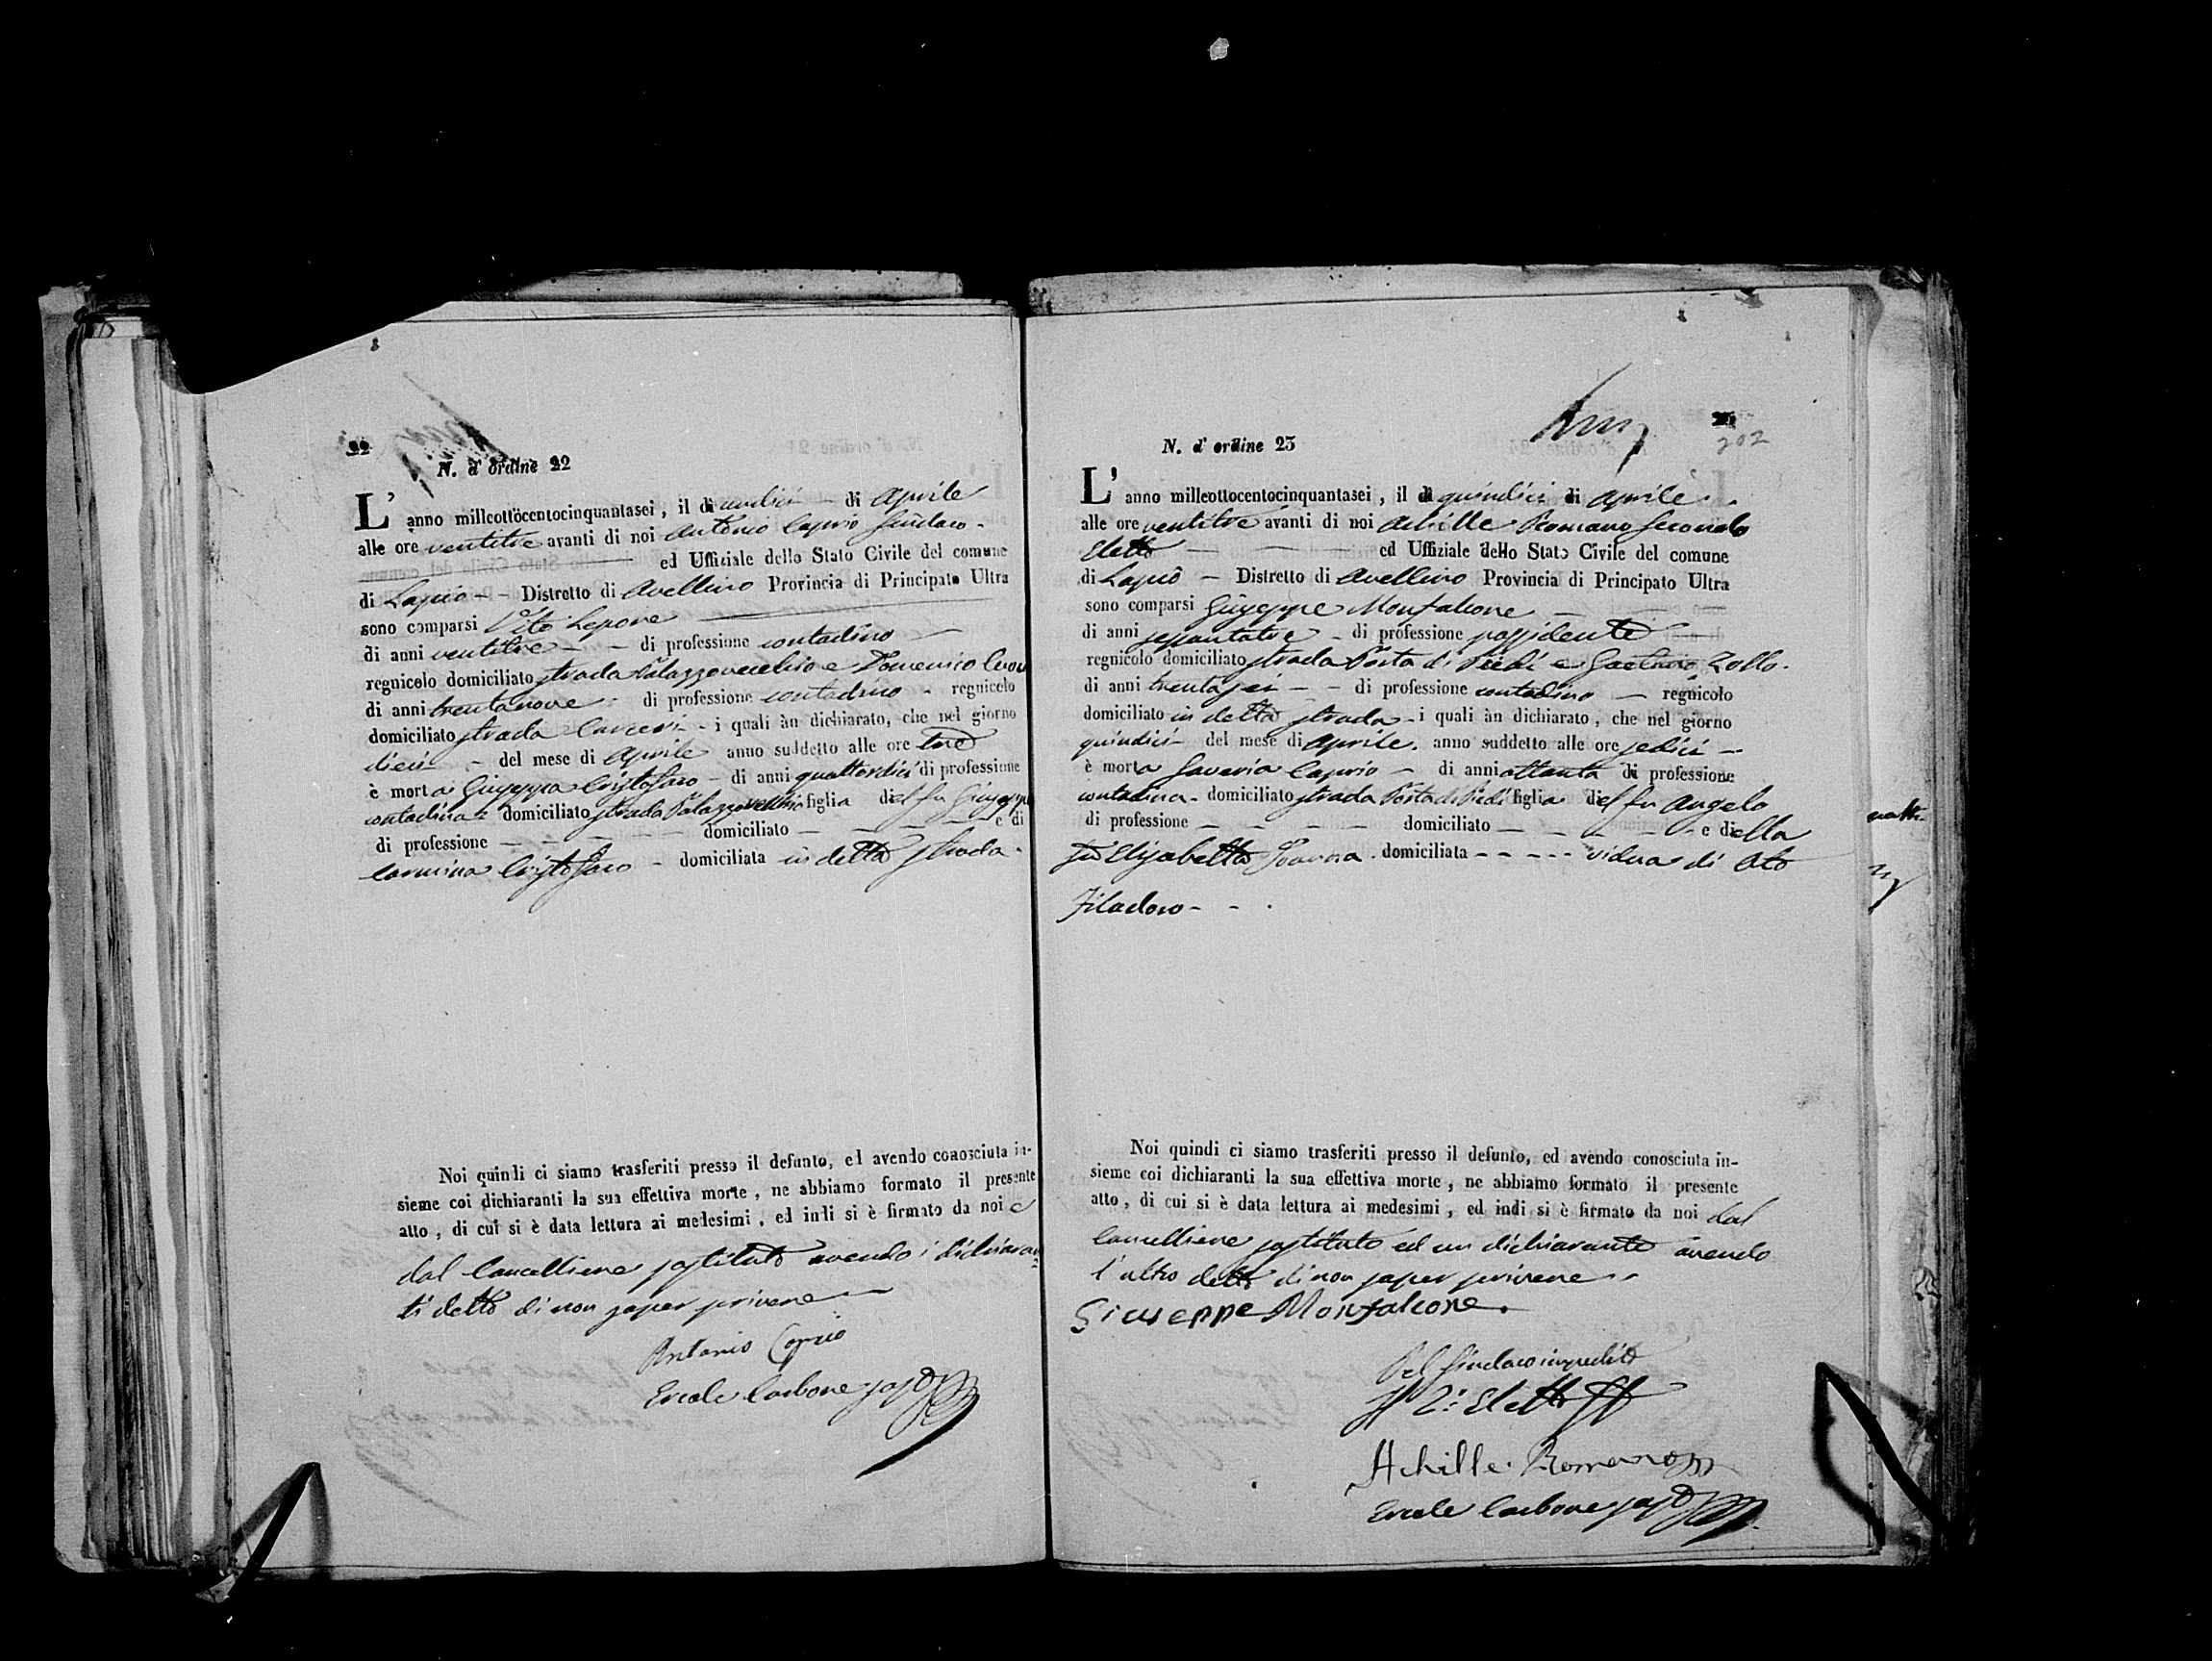 22
N. d' ordine 22
L' anno milleottocentocinquantasei, il di undici di Aprile
alle ore ventitre avanti di noi Antonio Caprio Sindaco
ed Uffiziale dello Stato Civile del comune
di Lapio Distretto di Avellino Provincia di Principato Ultra
sono comparsi Vito Lepore
di anni ventitre di professione contadino
regnicolo domiciliato strada Palazzovecchio e Domenico
di anni trentanove di professione contadino regnicolo
domiciliato strada Carceri i quali àn dichiarato, che nel giorno
dieci del mese di Aprile anno suddetto alle ore tre
è morta Giuseppa Cristofaro di anni quattordici di professione
contadina domiciliato strada Palazzovecchio figlia del fu Giuseppe
di professione domiciliato e di
Carmina Cristofaro domiciliata in detta strada
Noi quindi ci siamo trasferiti presso il defunto, ed avendo conosciuta in-
sieme coi dichiaranti la sua effettiva morte, ne abbiamo formato il presente
atto, di cui si è data lettura ai medesimi, ed indi si è firmato da noi e
dal Cancelliere sostituto avendo i dichiaran
ti detto di non saper scrivere
Antonio Caprio
Ercole Carbone sost
202
N. d' ordine 23
L' anno milleottocentocinquantasei, il di quindici di Aprile
alle ore ventitre avanti di noi Achille Romano Secondo
Eletto ed Uffiziale dello Stato Civile del comune
di Lapio Distretto di Avellino Provincia di Principato Ultra
sono comparsi Giuseppe Monfalcone
di anni sessantatre di professione possidente
regnicolo domiciliato strada Porta di Piedi e Gaetano Zollo.
di anni trentasei di professione contadino regnicolo
domiciliato in detta strada i quali àn dichiarato, che nel giorno
quindici del mese di Aprile. anno suddetto alle ore sedici
è morta Saveria Caprio di anni ottanta di professione
contadina domiciliato strada Porta di Piedi figlia del fu Angelo
di professione domiciliato e della
fu Elisabetta domiciliata vidua di Oto
Filadoro
Noi quindi ci siamo trasferiti presso il defunto, ed avendo conosciuta in-
sieme coi dichiaranti la sua effettiva morte, ne abbiamo formato il presente
atto, di cui si è data lettura ai medesimi, ed indi si è firmato da noi dal
Cancelliere sostituto ed un dichiarante avendo
l'altro detto di non saper scrivere
Giuseppe Monfalcone.
Pel Sindaco impedito
Il 2: Eletto
Achille Romano
Ercole Carbone sost